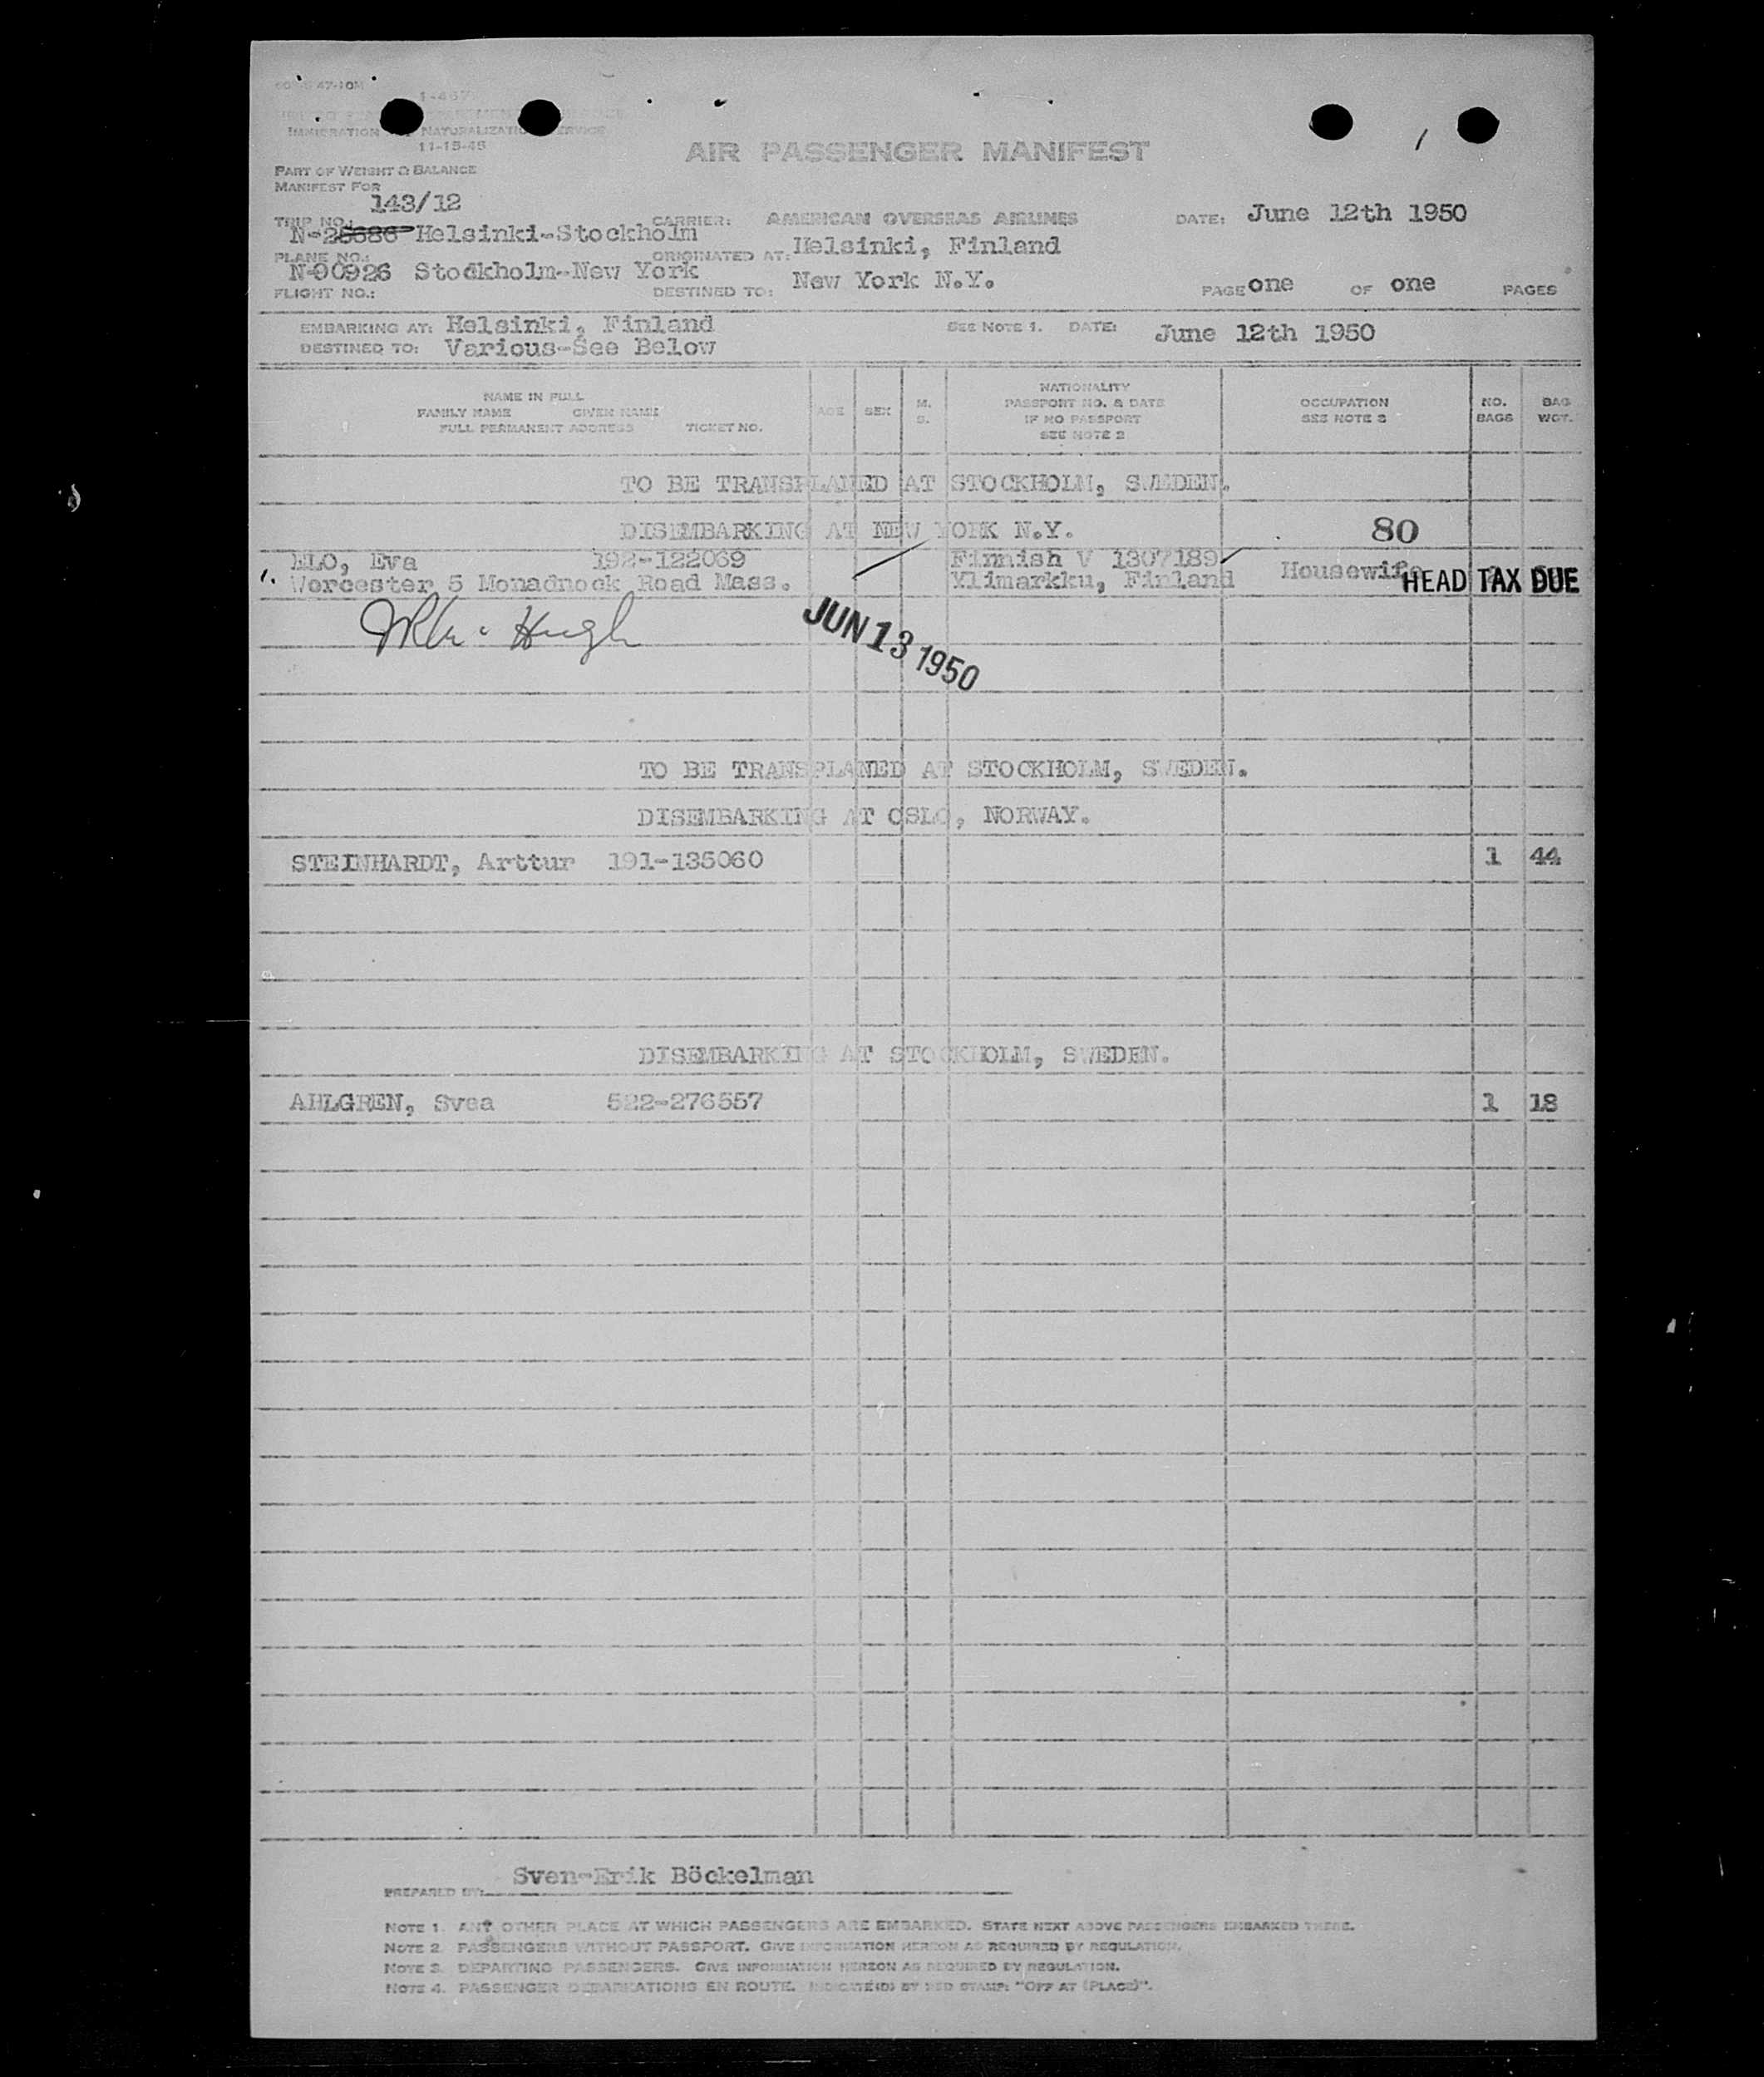 47-10M
1-467
IMMIGRATION NATURALIZATION SERVICE
11-15-45
AIR PASSENGER MANIFEST
PART OF WEIGHT & BALANCE
MANIFEST FOR
143/12
TRIP NO.: CARRIER: AMERICAN OVERSEAS AIRLINES DATE: June 12th 1950
Helsinki-Stockholm
PLANE NO.: ORIGINATED AT: Helsinki, Finland
N-90926 Stockholm-New York
FLIGHT NO.: DESTINED TO: New York N.Y. PAGE one OF one PAGES
EMBARKING AT: Helsinki, Finland SEE NOTE 1. DATE: June 12th 1950
DESTINED TO: Various-See Below
NAME IN FULL
FAMILY NAME GIVEN NAME
FULL PERMANENT ADDRESS TICKET NO.
AGE
SEX
M.
S.
NATIONALITY
PASSPORT NO. & DATE
IF NO PASSPORT
SEE NOTE 2
OCCUPATION
SEE NOTE 3
NO.
BAGS
BAG
WGT.
TO BE TRANSPLANED AT STOCKHOLM, SWEDEN.
DISEMBARKING AT NEW YORK N.Y. 80
ELO, Eva 192-122069 Finnish V 1307189
1. Worcester 5 Monadnock Road Mass. Ylimarkku, Finland Housewife HEAD TAX DUE
JUN 13 1950
TO BE TRANSPLANED AT STOCKHOLM, SWEDEN.
DISEMBARKING AT OSLO, NORWAY.
STEINHARDT, Arttur 191-135060 1 44
DISEMBARKING AT STOCKHOLM, SWEDEN.
AHLGREN, Svea 522-276557 1 18
PREPARED BY: Sven-Erik Böckelman
NOTE 1. ANY OTHER PLACE AT WHICH PASSENGERS ARE EMBARKED. STATE NEXT ABOVE PASSENGERS EMBARKED THERE.
NOTE 2. PASSENGERS WITHOUT PASSPORT. GIVE INFORMATION HEREON AS REQUIRED BY REGULATION.
NOTE 3. DEPARTING PASSENGERS. GIVE INFORMATION HEREON AS REQUIRED BY REGULATION.
NOTE 4. PASSENGER DEBARKATIONS EN ROUTE. INDICATE(D) BY RED STAMP: "OFF AT (PLACE)".